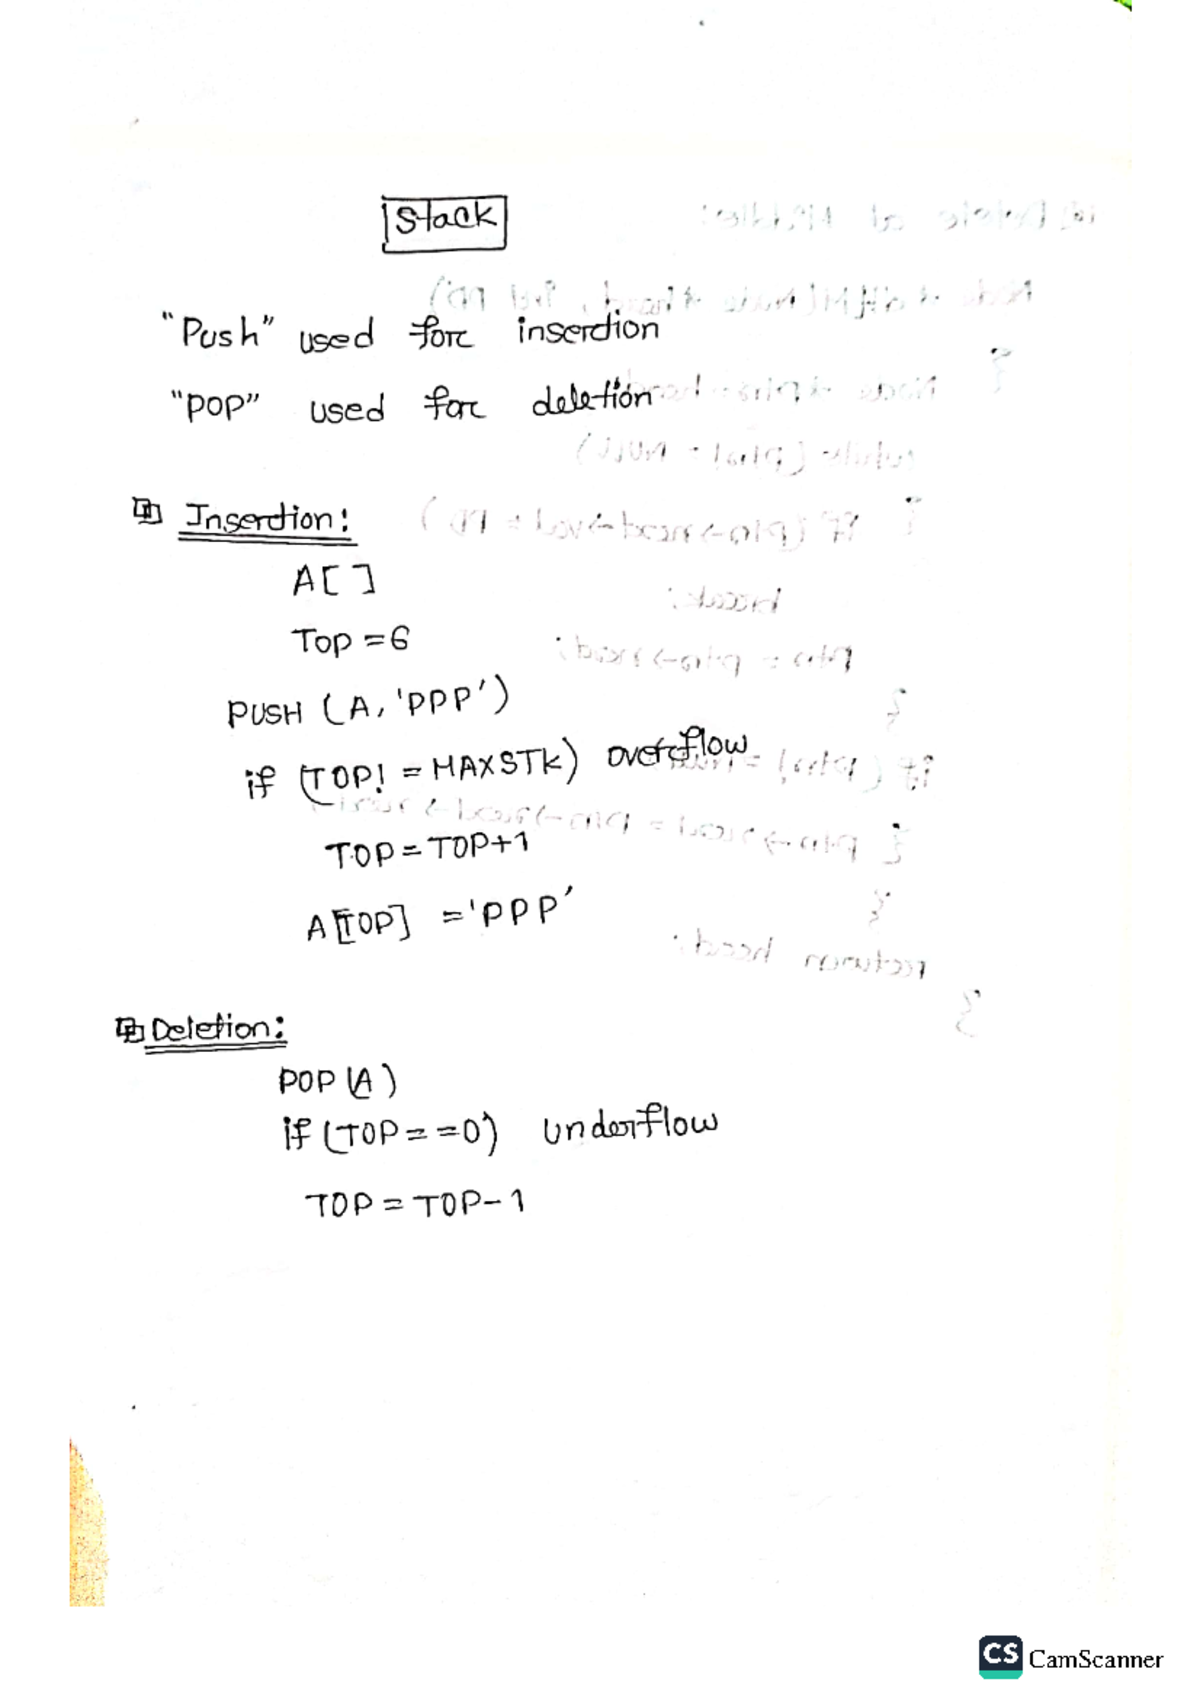 Stack
"Push" used for insertion
"POP" used for deletion
Insertion:
A[ ]
Top = 6
PUSH (A, 'PPP')
if (TOP! = MAXSTK) overflow
TOP = TOP+1
A[TOP] = 'PPP'
Deletion:
POP (A)
if (TOP = = 0) underflow
TOP = TOP- 1
CS CamScanner